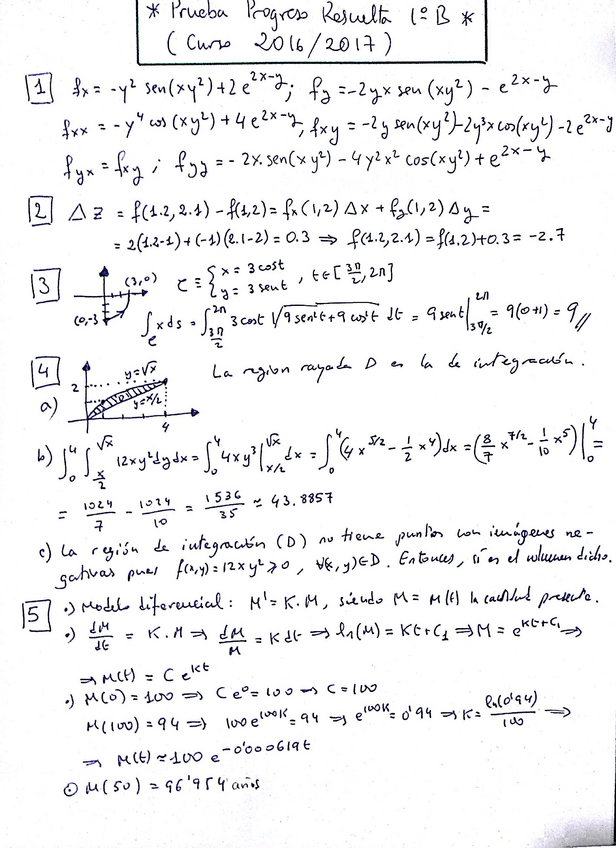 * Prueba Progreso Resuelta 1º B *
(Curso 2016/2017)
1 fx = -y² sen(xy²)+2e^{2x-y}; fy = -2yx sen(xy²) - e^{2x-y}
fxx = -y⁴ cos(xy²)+4e^{2x-y}, fxy = -2y sen(xy²)-2y³x cos(xy²)-2e^{2x-y}
fyx = fxy; fyy = -2x.sen(xy²) - 4y²x² cos(xy²)+e^{2x-y}
2 Δz = f(1.2,2.1) - f(1,2) = fx(1,2) Δx + fy(1,2) Δy =
= 2(1.2-1)+(-1)(2.1-2) = 0.3 ⇒ f(1.2,2.1) = f(1,2)+0.3 = -2.7
3 (3,0) (0,-3 C ≡ { x = 3cost y = 3sent, t∈[3π/2, 2π]
∫_C x ds = ∫_{3π/2}^{2π} 3cost √(9sen²t+9cos²t) dt = 9sent|_{3π/2}^{2π} = 9(0+1) = 9 //
4 a) 2 y=√x y=x/2 4 La region rayada D es la de integración.
b) ∫_0^4 ∫_{x/2}^{√x} 12xy²dydx = ∫_0^4 4xy³|_{x/2}^{√x} dx = ∫_0^4 (4x^{5/2} - 1/2 x⁴)dx = (8/7 x^{7/2} - 1/10 x⁵)|_0^4 =
= 1024/7 - 1024/10 = 1536/35 ≈ 43.8857
c) La región de integración (D) no tiene puntos con imágenes ne-
gativas pues f(x,y) = 12xy² ≥ 0, ∀(x,y)∈D. Entonces, sí es el volumen dicho.
5 •) Modelo diferencial: M' = K.M, siendo M = M(t) la cantidad presente.
•) dM/dt = K.M ⇒ dM/M = Kdt ⇒ ln(M) = Kt+C₁ ⇒ M = e^{Kt+C₁} ⇒
⇒ M(t) = C e^{Kt}
•) M(0) = 100 ⇒ C e⁰ = 100 ⇒ C = 100
M(100) = 94 ⇒ 100e^{100K} = 94 ⇒ e^{100K} = 0'94 ⇒ K = ln(0'94)/100 ⇒
⇒ M(t) ≈ 100 e^{-0'000619t}
⊙ M(50) = 96'954 años